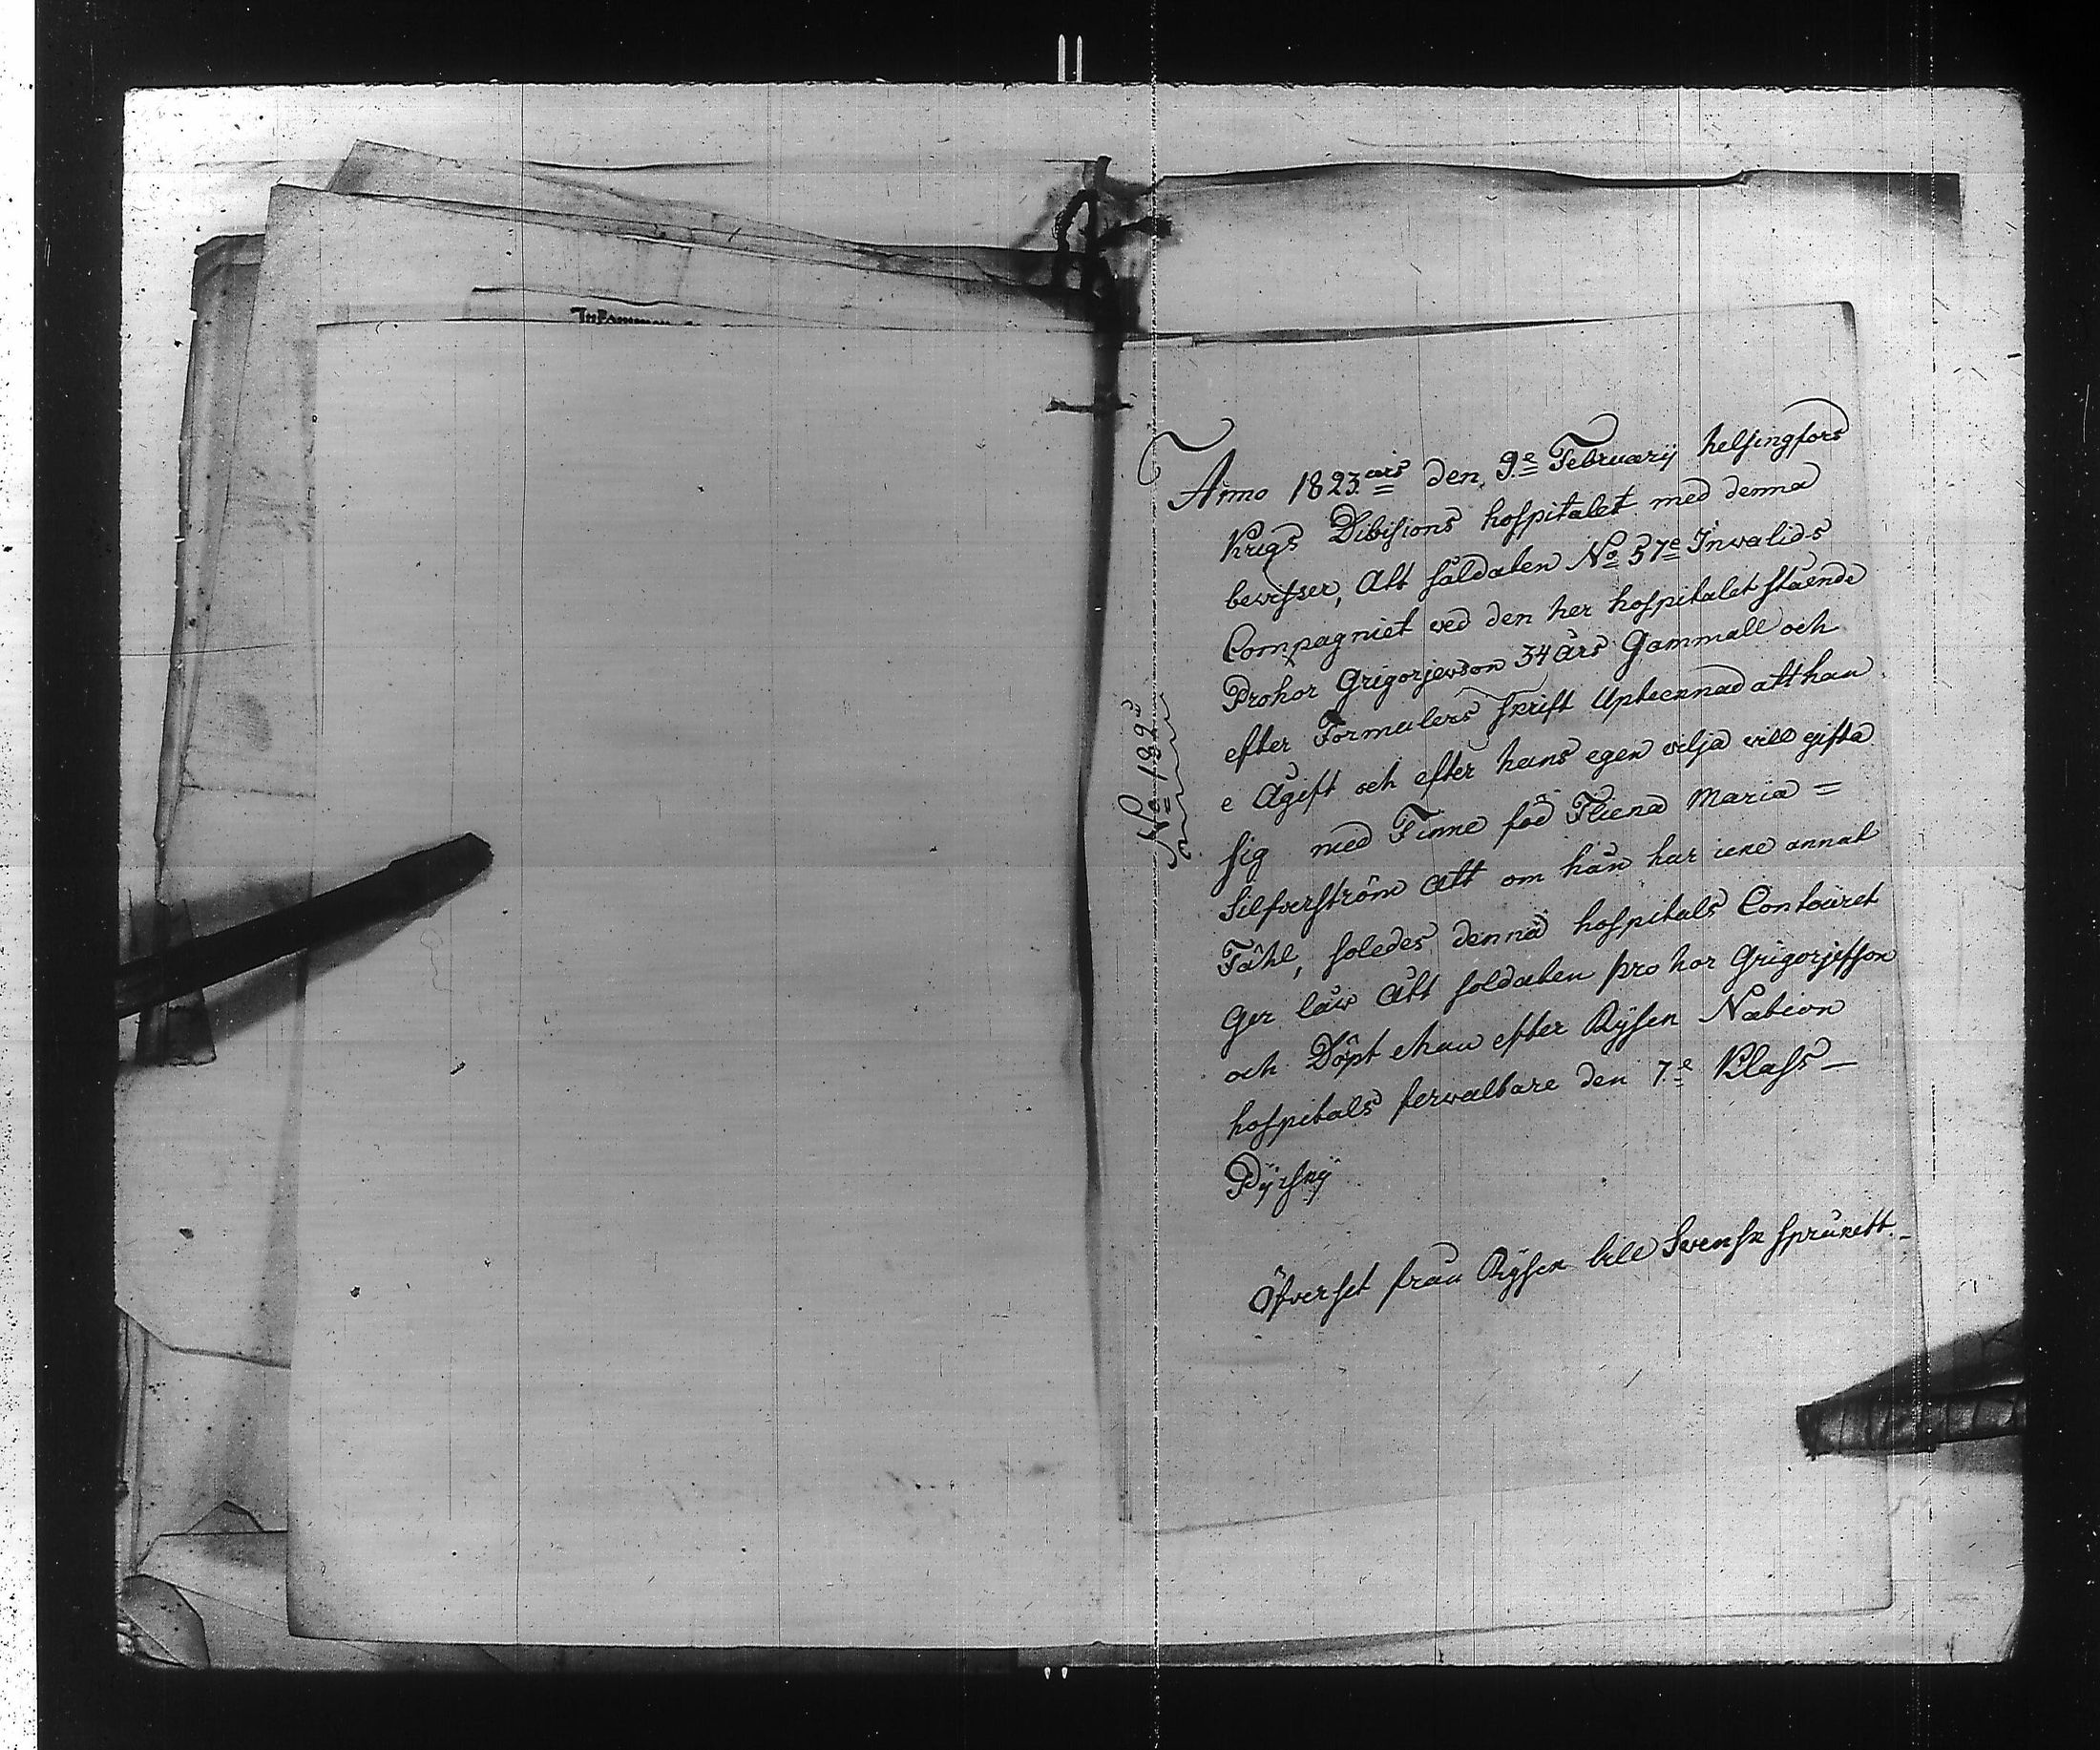 Anno 1823 års den 9e Februarij helsingfors
Krigs Divisions hospitalet med denna
bewisser, Att såldaten No 57e Inwalids
Compagniet wed den her hospitalet stående
Prohor Grigorjewson 34 års Gammall och
efter Formulers skrift Upteknad att han
e Ågift och efter hans egen wilja will gifta
sig med Finne föd Maria =
Silfverström Att om hån har icke annat
Tåhl, soledes denna hospitals Contouret
Ger låw Att soldaten pro hor Grigorjefson
och Döpt ehan efter Rÿsen Nation
hospitals ferwaltare den 7e Klass —
Öfverset från Rÿsen till Svensk språkett. –
No 182